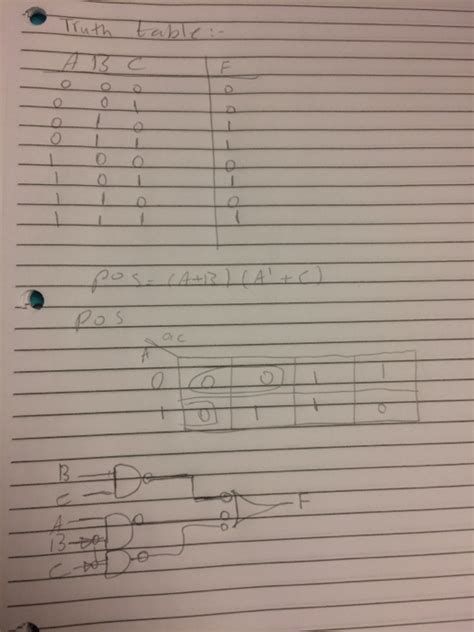 Truth table:-
A B C F
0 0 0 0
0 0 1 0
0 1 0 1
0 1 1 1
1 0 0 0
1 0 1 1
1 1 0 0
1 1 1 1
POS = (A+B) (A'+C)
POS
A
0 0 0 1 1
1 0 1 1 0
B
C
F
A
B
C